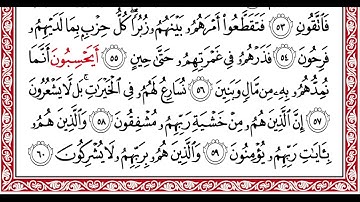 فَاتَّقُونِ ٥٣ فَتَقَطَّعُوٓاْ أَمْرَهُمُۥ بَيْنَهُمُۥ زُبُرٗاۖ كُلُّ حِزْبِۭ بِمَا لَدَيْهِمُۥ
فَرِحُونَ ٥٤ فَذَرْهُمُۥ فِي غَمْرَتِهِمُۥ حَتَّىٰ حِينٍ ٥٥ أَيَحْسِبُونَ أَنَّمَا
نُمِدُّهُمُۥ بِهِۦ مِن مَّالٖ وَبَنِينَ ٥٦ نُسَارِعُ لَهُمُۥ فِي الْخَيْرَٰتِۚ بَل لَّا يَشْعُرُونَ
٥٧ إِنَّ الَّذِينَ هُمُۥ مِّنْ خَشْيَةِ رَبِّهِمُۥ مُّشْفِقُونَ ٥٨ وَالَّذِينَ هُمُۥ
بِـَٔايَٰتِ رَبِّهِمُۥ يُؤْمِنُونَ ٥٩ وَالَّذِينَ هُمُۥ بِرَبِّهِمُۥ لَا يُشْرِكُونَ ٦٠